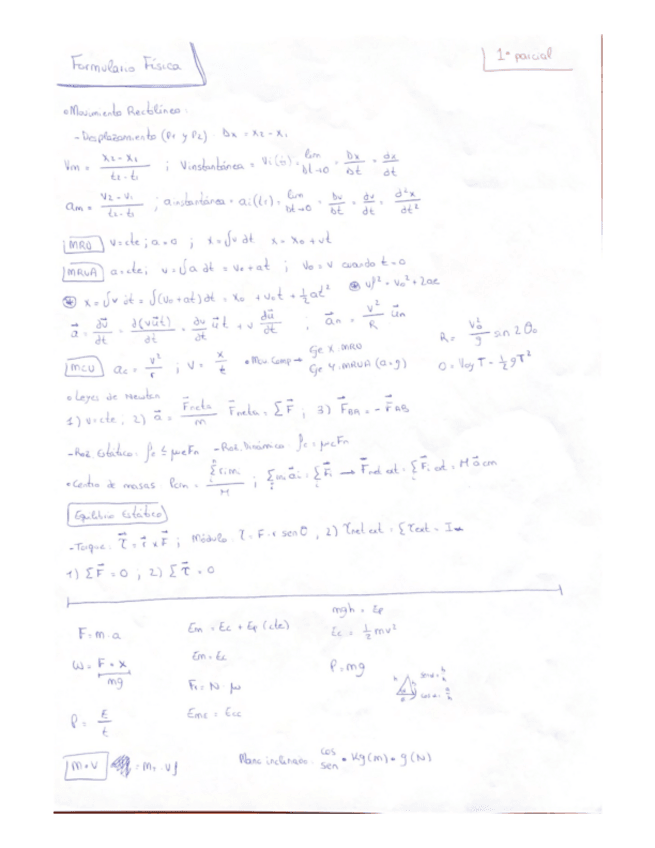 Formulario Física
1º parcial
• Movimiento Rectilíneo:
- Desplazamiento (P1 y P2) Δx = x2 - x1
Vm = (x2 - x1)/(t2 - t1) ; Vinstantánea = Vi(t) = lim Δt→0 = Δx/Δt = dx/dt
am = (v2 - v1)/(t2 - t1) ; ainstantánea = ai(t1) = lim Δt→0 = Δv/Δt = dv/dt = d²x/dt²
MRU v = cte ; a = 0 ; x = ∫v dt x = x0 + vt
MRUA a = cte, v = ∫a dt = v0 + at ; v0 = v cuando t = 0
x = ∫v dt = ∫(v0 + at)dt = x0 + v0t + ½at² vf² = v0² + 2ae
a⃗ = dv⃗/dt = d(vu⃗t)/dt = dv/dt u⃗t + v du⃗/dt ; a⃗n = v²/R u⃗n
R = v0²/g sin 2θ0
MCU ac = v²/r ; v = x/t • Mov Comp → Eje X. MRU
Eje Y. MRUA (a = g)
0 = V0y T - ½gT²
• Leyes de Newton
1) v = cte ; 2) a⃗ = F⃗neta/m F⃗neta = ΣF⃗ ; 3) F⃗BA = - F⃗AB
- Roz. Estático: fe ≤ μeFn - Roz. Dinámico: fc = μcFn
• Centro de masas: rcm = Σ ri mi/M ; Σ mi a⃗i = ΣF⃗i → F⃗net ext = ΣF⃗i ext = M a⃗cm
Equilibrio Estático
- Torque: τ⃗ = r⃗ x F⃗ ; Módulo: τ = F · r sen θ , 2) τnet ext = Στext = Iα
1) ΣF⃗ = 0 ; 2) Στ⃗ = 0
mgh = Ep
F = m · a Em = Ec + Ep (cte) Ec = ½mv²
Em = Ec
W = F · x P = mg
mg
Fr = N · μ
P = E/t Emc = Ecc
m · v = mf · vf Plano inclinado: cos
sen • Kg(m) • g(N)